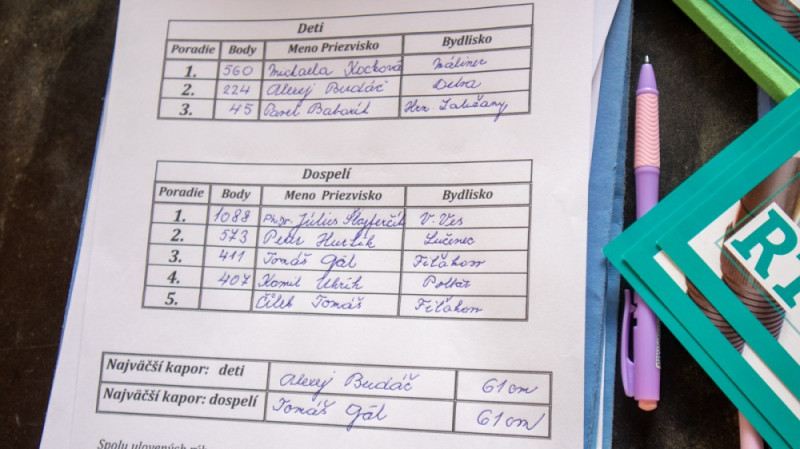 Deti
Poradie Body Meno Priezvisko Bydlisko
1. 560 Michaela Kocková Málinec
2. 224 Alexej Budáč Detva
3. 45 Pavel Baboník
Dospelí
Poradie Body Meno Priezvisko Bydlisko
1. 1088 PhDr. Július V. Ves
2. 573 Peter Hurtík Lučenec
3. 411 Tomáš Gál Fiľakovo
4. 407 Kamil Uhrík Poltár
5. Čilek Tomáš Fiľakovo
Najväčší kapor: deti Alexej Budáč 61 cm
Najväčší kapor: dospelí Tomáš Gál 61 cm
Spolu ulovených rýb